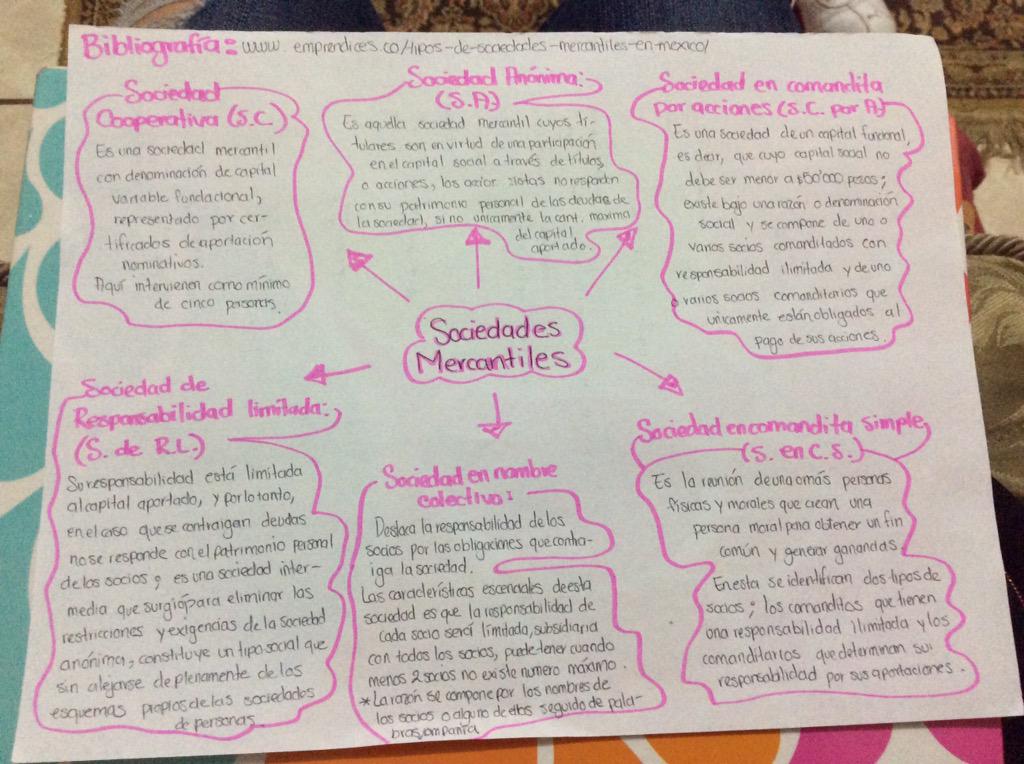 Bibliografía: www.emprendices.co/tipos-de-sociedades-mercantiles-en-mexico/
Sociedad
Cooperativa (S.C.)
Es una sociedad mercantil
con denominación de capital
variable fundacional,
representado por cer-
tificados de aportación
nominativos.
Aquí intervienen como mínimo
de cinco personas.
Sociedad Anónima:
(S.A)
Es aquella sociedad mercantil cuyos ti-
tulares son en virtud de una participación
en el capital social a través de títulos
o acciones, los accionistas no responden
con su patrimonio personal de las deudas de
la sociedad, si no unicamente la cant. maxima
del capital
aportado.
Sociedad en comandita
por acciones (S.C. por A)
Es una sociedad de un capital funcional,
es decir, que cuyo capital social no
debe ser menor a $50'000 pesos;
existe bajo una razón o denominación
social y se compone de uno o
varios socios comanditados con
responsabilidad ilimitada y de uno
o varios socios comanditarios que
unicamente están obligados al
pago de sus acciones.
Sociedades
Mercantiles
Sociedad de
Responsabilidad limitada:
(S. de R.L.)
Su responsabilidad está limitada
al capital aportado, y por lo tanto,
en el caso que se contraigan deudas
no se responde con el patrimonio personal
de los socios, es una sociedad inter-
media que surgió para eliminar las
restricciones y exigencias de la Sociedad
anónima, constituye un tipo social que
sin alejarse de plenamente de los
esquemas propios de las sociedades
de personas.
Sociedad en nombre
colectivo:
Destaca la responsabilidad de los
socios por las obligaciones que contra-
iga la sociedad.
Las características escenciales de esta
sociedad es que la responsabilidad de
cada socio será limitada, subsidiaria
con todos los socios, puede tener cuando
menos 2 socios no existe numero máximo.
*La razón se compone por los nombres de
los socios o alguno de ellos seguido de pala-
bras compañía
Sociedad en comandita simple
(S. en C.S.)
Es la reunión de una o más personas
físicas y morales que crean una
persona moral para obtener un fin
común y generar ganancias.
En esta se identifican dos tipos de
socios; los comanditos que tienen
una responsabilidad ilimitada y los
comanditarios que determinan su
responsabilidad por sus aportaciones.